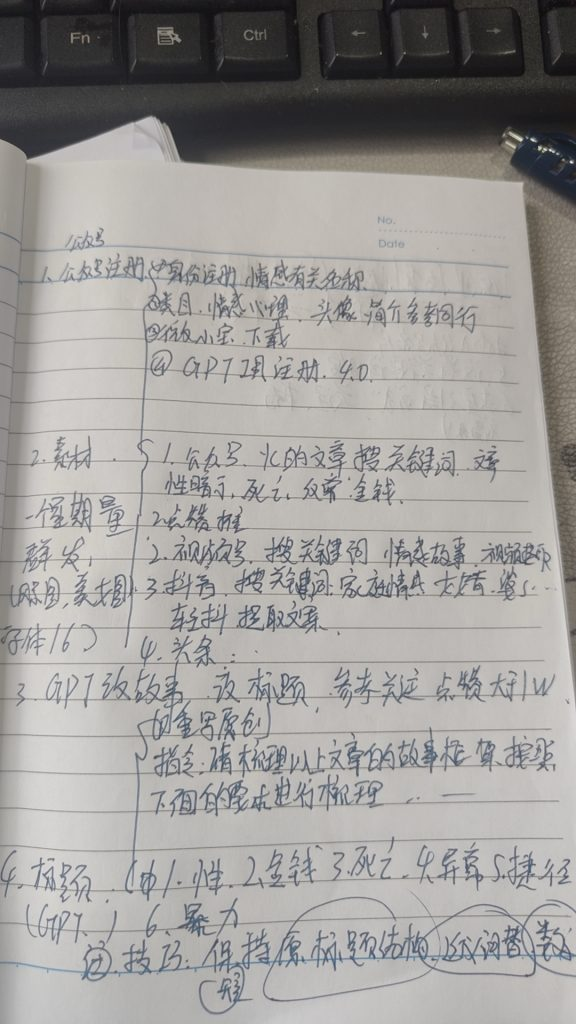 Fn
Ctrl
← ↓ →
No.
Date
公众号
1. 公众号注册 ①身份注册 情感有关名称
②类目,情感心理, 头像 简介多参同行
③ 小宝 下载
④ GPT 注册. 4.0.
2. 素材 1. 公众号. 的文章 搜关键词
性暗示, 死亡, 金钱.
一个星期量 2 点赞 推
群发, 2. 视频号, 搜关键词 情感故事
(原图,美女图) 3. 抖音, 搜关键词 家庭情感
字体16) 轻抖 提取文案.
4. 头条..
3. GPT改故事 改标题, 参考关注 点赞大于1W
的重写原创
指令: 请梳理以上文章的故事框架, 按照
下面的要求进行梳理 ... —
4. 标题. 1. 性. 2. 金钱 3. 死亡. 4. 异常 5. 捷径
(GPT.) 6. 暴力
技巧: 保持原标题结构, 近义词替